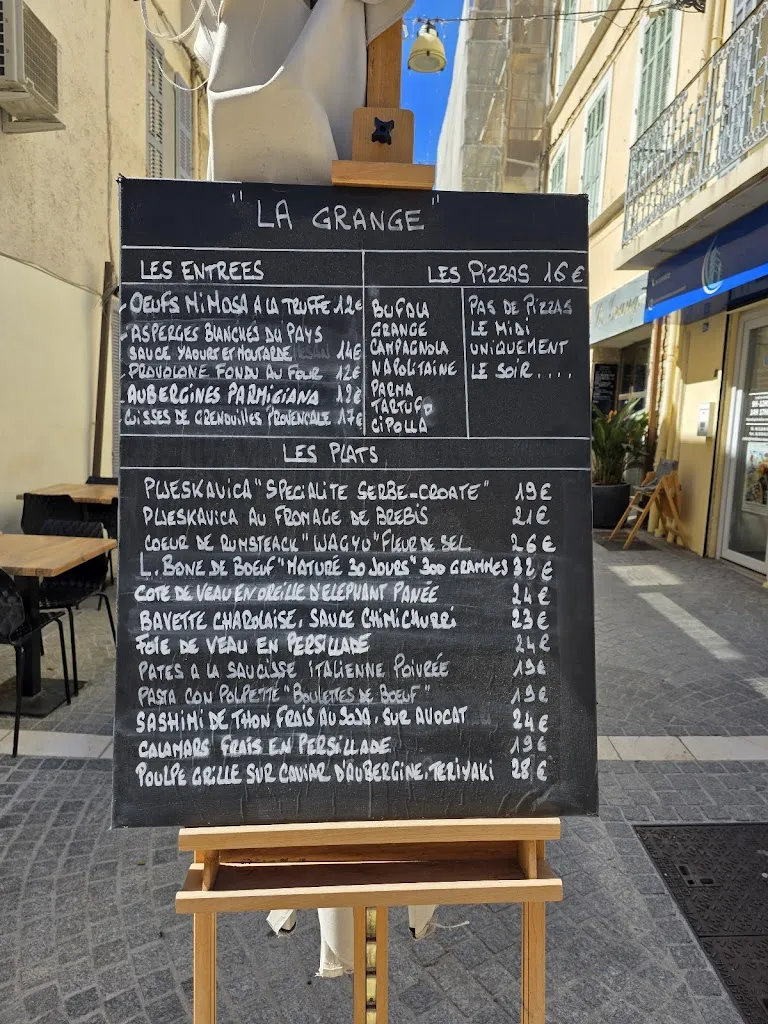 "LA GRANGE"
LES ENTREES
OEUFS MIMOSA A LA TRUFFE 12€
ASPERGES BLANCHES DU PAYS
SAUCE YAOURT ET MOUTARDE 14€
PROVOLONE FONDU AU FOUR 12€
AUBERGINES PARMIGIANA 12€
CUISSES DE GRENOUILLES PROVENCALE 17€
LES PIZZAS 16€
BUFALA
GRANGE
CAMPAGNOLA
NAPOLITAINE
PARMA
TARTUFO
CIPOLLA
PAS DE PIZZAS
LE MIDI
UNIQUEMENT
LE SOIR....
LES PLATS
PLJESKAVICA "SPECIALITE SERBE-CROATE" 19€
PLJESKAVICA AU FROMAGE DE BREBIS 21€
COEUR DE RUMSTEACK "WAGYU" FLEUR DE SEL 26€
L.BONE DE BOEUF "MATURÉ 30 JOURS" 300 GRAMMES 32€
COTE DE VEAU EN OREILLE D'ELEPHANT PANÉE 24€
BAVETTE CHAROLAISE, SAUCE CHIMICHURRI 23€
FOIE DE VEAU EN PERSILLADE 24€
PATES A LA SAUCISSE ITALIENNE POIVRÉE 19€
PASTA CON POLPETTE "BOULETTES DE BOEUF" 19€
SASHIMI DE THON FRAIS AU SOJA, SUR AVOCAT 24€
CALAMARS FRAIS EN PERSILLADE 19€
POULPE GRILLE SUR CAVIAR D'AUBERGINE, TERIYAKI 28€